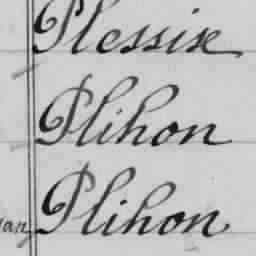 Plessix
Plihon
Plihon